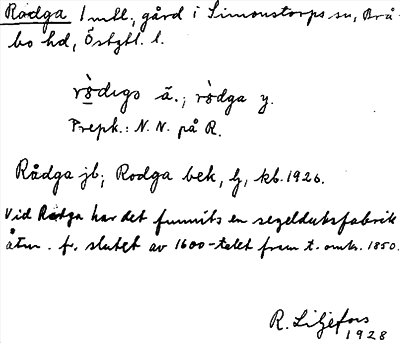 Rodga 1 mtl., gård i Simonstorps sn, Brå-
bo hd, Östgtl. l.
rò̀digs ä.; rò̀dga y.
Prepk.: N. N. på R.
Rådga jb; Rodga bek, G, kb. 1926.
Vid Rodga har det funnits en segelduksfabrik
åtm. fr. slutet av 1600-talet fram t. omkr. 1850.
R. Liljefors
1928